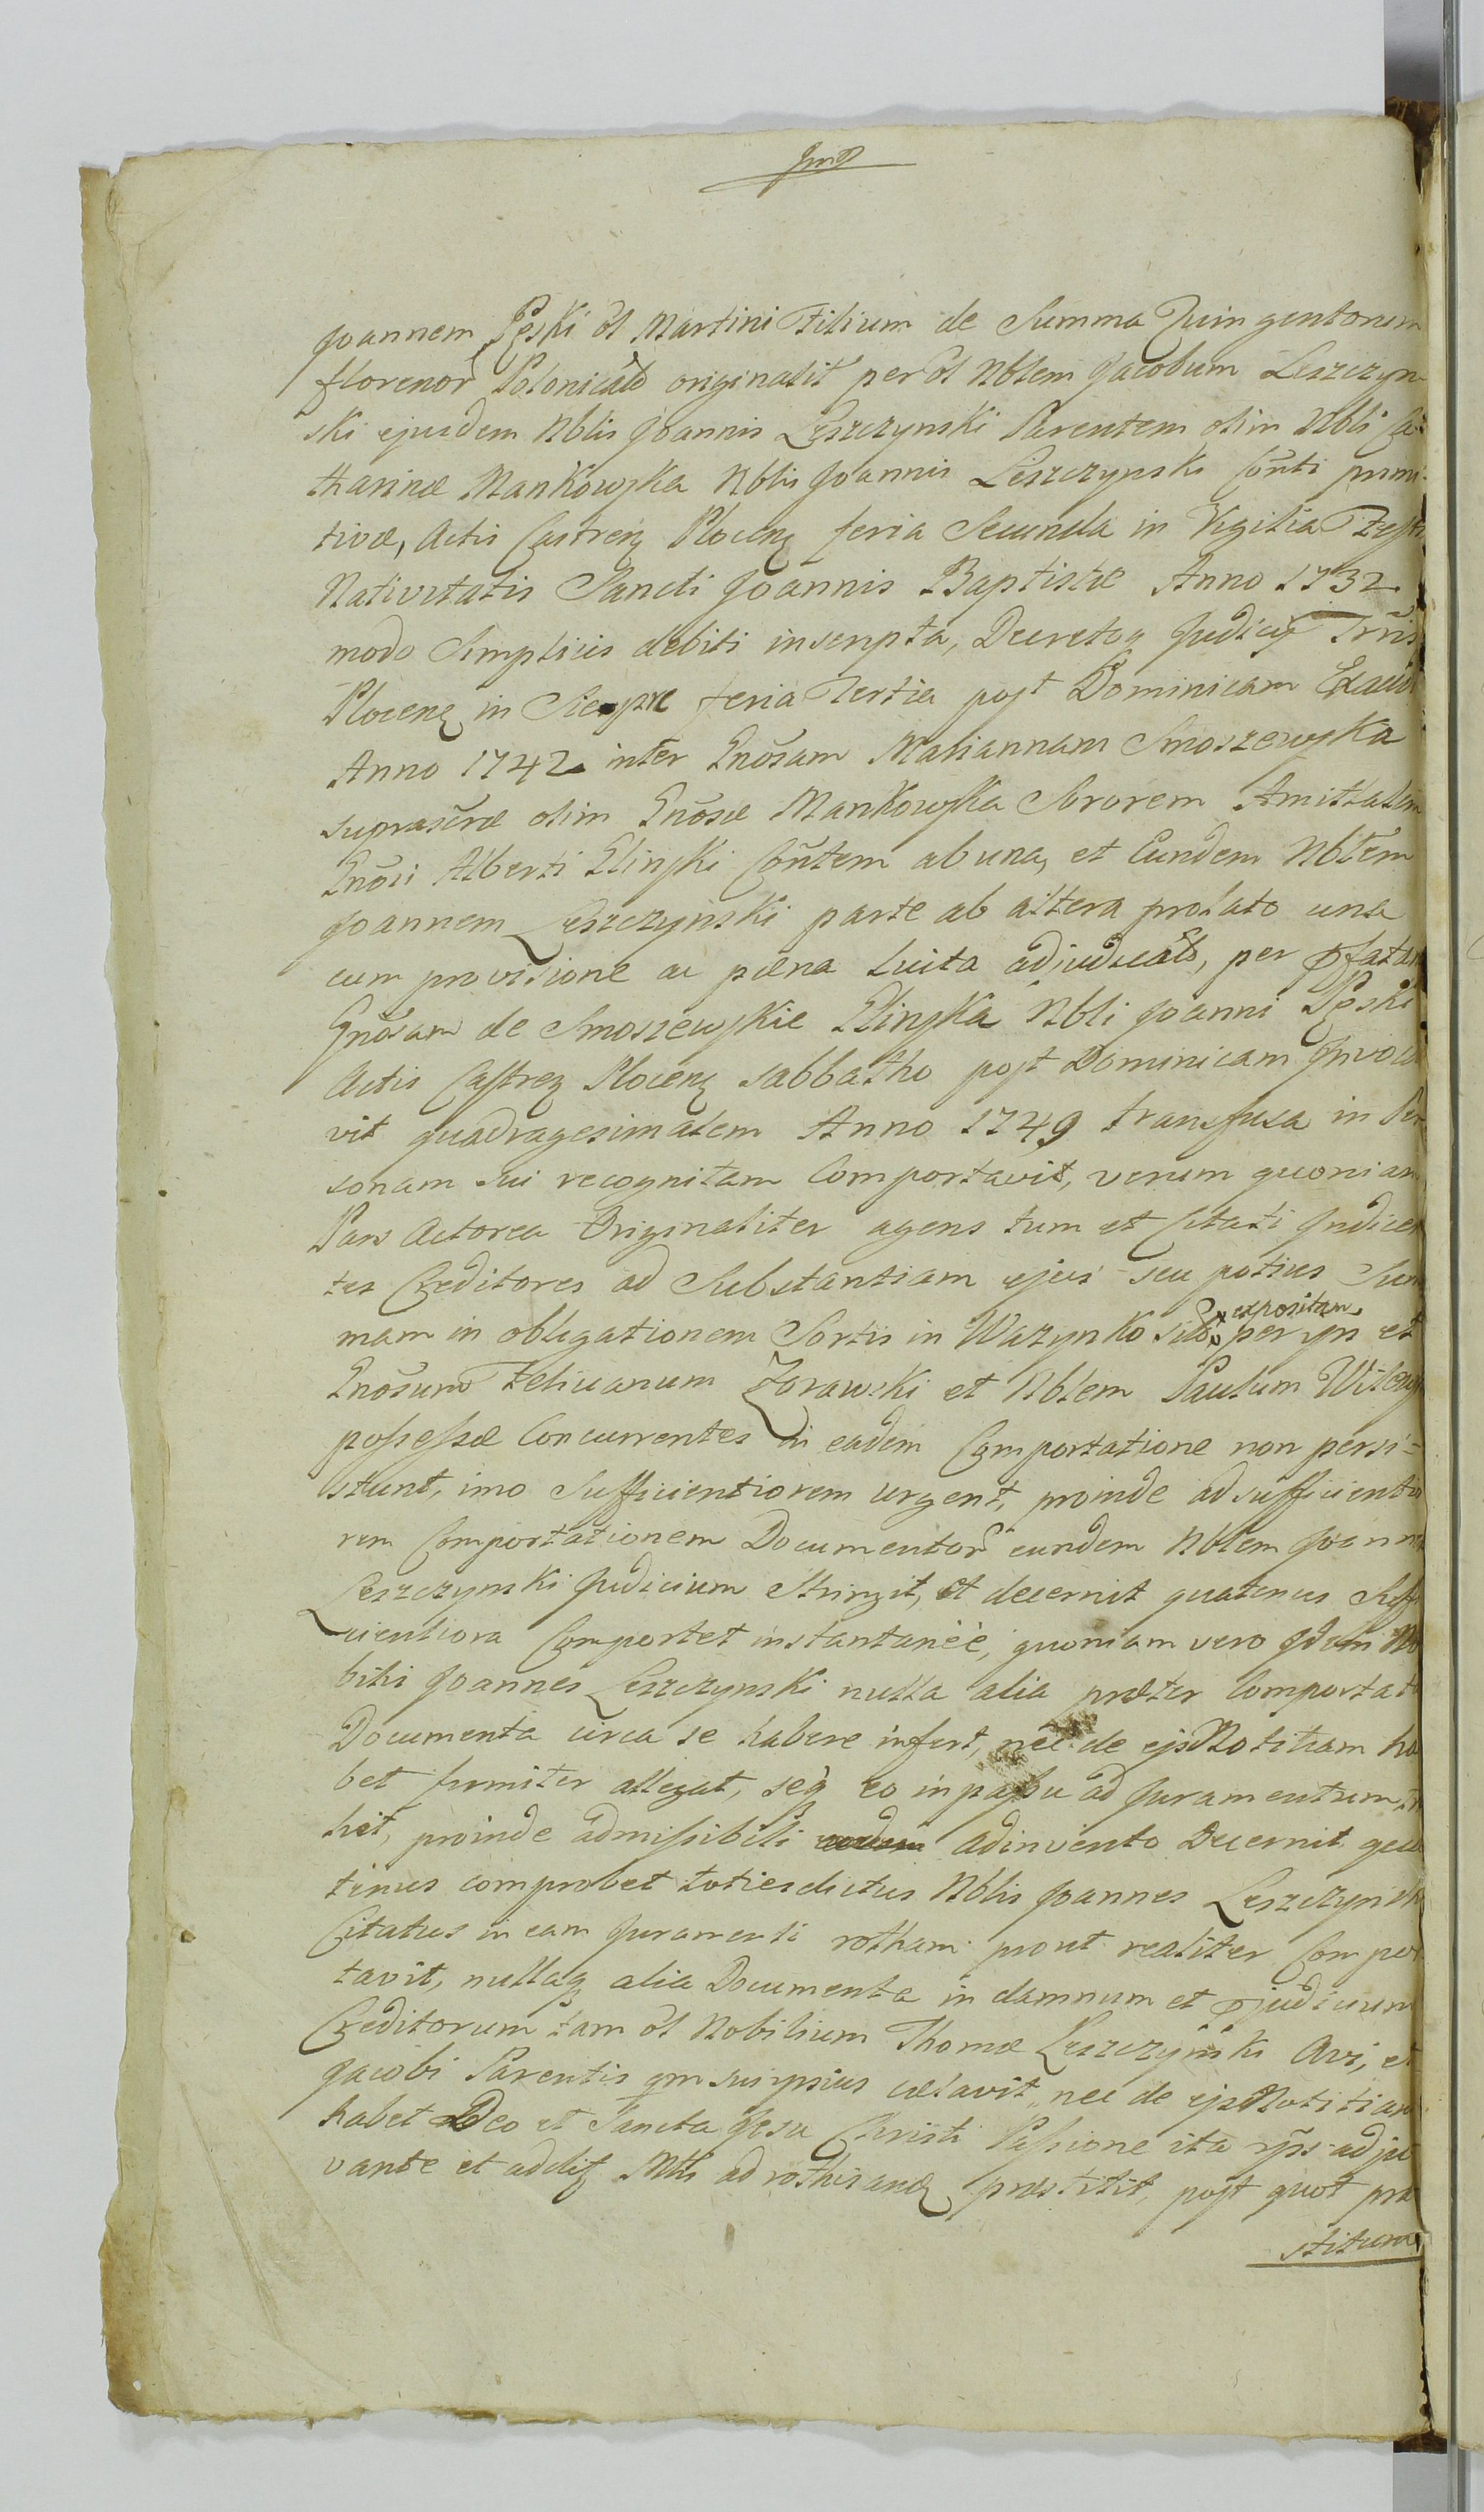 Joannem Pęski ol Martini Filium de Summa Quingentorum
florenor Polonicalo originalit per ol Nblem Jacobum Leszczyn-
ski ejusdem Nblis Joannis Leszczynski Parentem olim Nbli Ca-
tharinæ Mankowska Nblis Joannis Leszczynski Conti primi-
tivæ, Actis Castrenz Plocenz feria Secunda in Vigilia Festi
Nativitatis Sancti Joannis Baptistæ Anno 1732
modo Simplicis debiti inscripta, Decretoq Judicij Trris
Plocenz in Sierpc feria Tertia post Dominicam Exaudi
Anno 1742 inter Gnosam Mariannam Smoszewska
suprascræ olim Gnosæ Mankowska Sororem Amittalem
Gnosi Alberti Glinski Contem ab una, et Eundem Nblem
Joannem Leszczynski parte ab altera prolato una
cum provisione ac pæna luita adjudicalo, per pfatam
Gnosam de Smoszewskie Glinska Nbli Joanni Pęski
Actis Castrez Plocenz sabbatho post Dominicam Invoca
vit quadragesimalem Anno 1749 transfusa in Per
sonam sui recognitam Comportavit, verum quoniam
Pars Actorea Originaliter agens tum et Citati Indicen
tes Creditores ad Substantiam ejus seu potius Sum
mam in obligationem Sortis in Wazynko sito expositam per ips et
Gnosum Felicianum Zorawski et Nblem Paulum Wilczy
possessæ Concurrentes in eadem Comportatione non persi=
stunt, imo Sufficientiorem urgent, proinde ad sufficientio
rem Comportationem Documentor eundem Nblem Joannem
Leszczynski Judicium Stringit, et decernit quatenus Suffi
cientiora Comportet instantaneè, quoniam vero Idem No
bilis Joannes Leszczynski nulla alia præter Comportata
Documenta circa se habere infert, nec de ejs Notitiam ha
bet firmiter allegat, seq eo in passu ad Juramentum tra
hit, proinde admissibili adinvento Decernit qua
tenus comprobet totiesdictus Nblis Joannes Leszczynski
Citatus in eam Juramenti rotham prout realiter Compor
tavit, nullaq alia Documenta in damnum et pjudicium
Creditorum tam ol Nobilium Thomæ Leszczynski Avi, et
Jacobi Parentis qm sui ipsius celavit, nec de ejs Notitiam
habet Deo et Sancta Jesu Christi Passione ita ips adju
vante et addit Mtis ad rothisandz præstitit, post quot præ
stitum